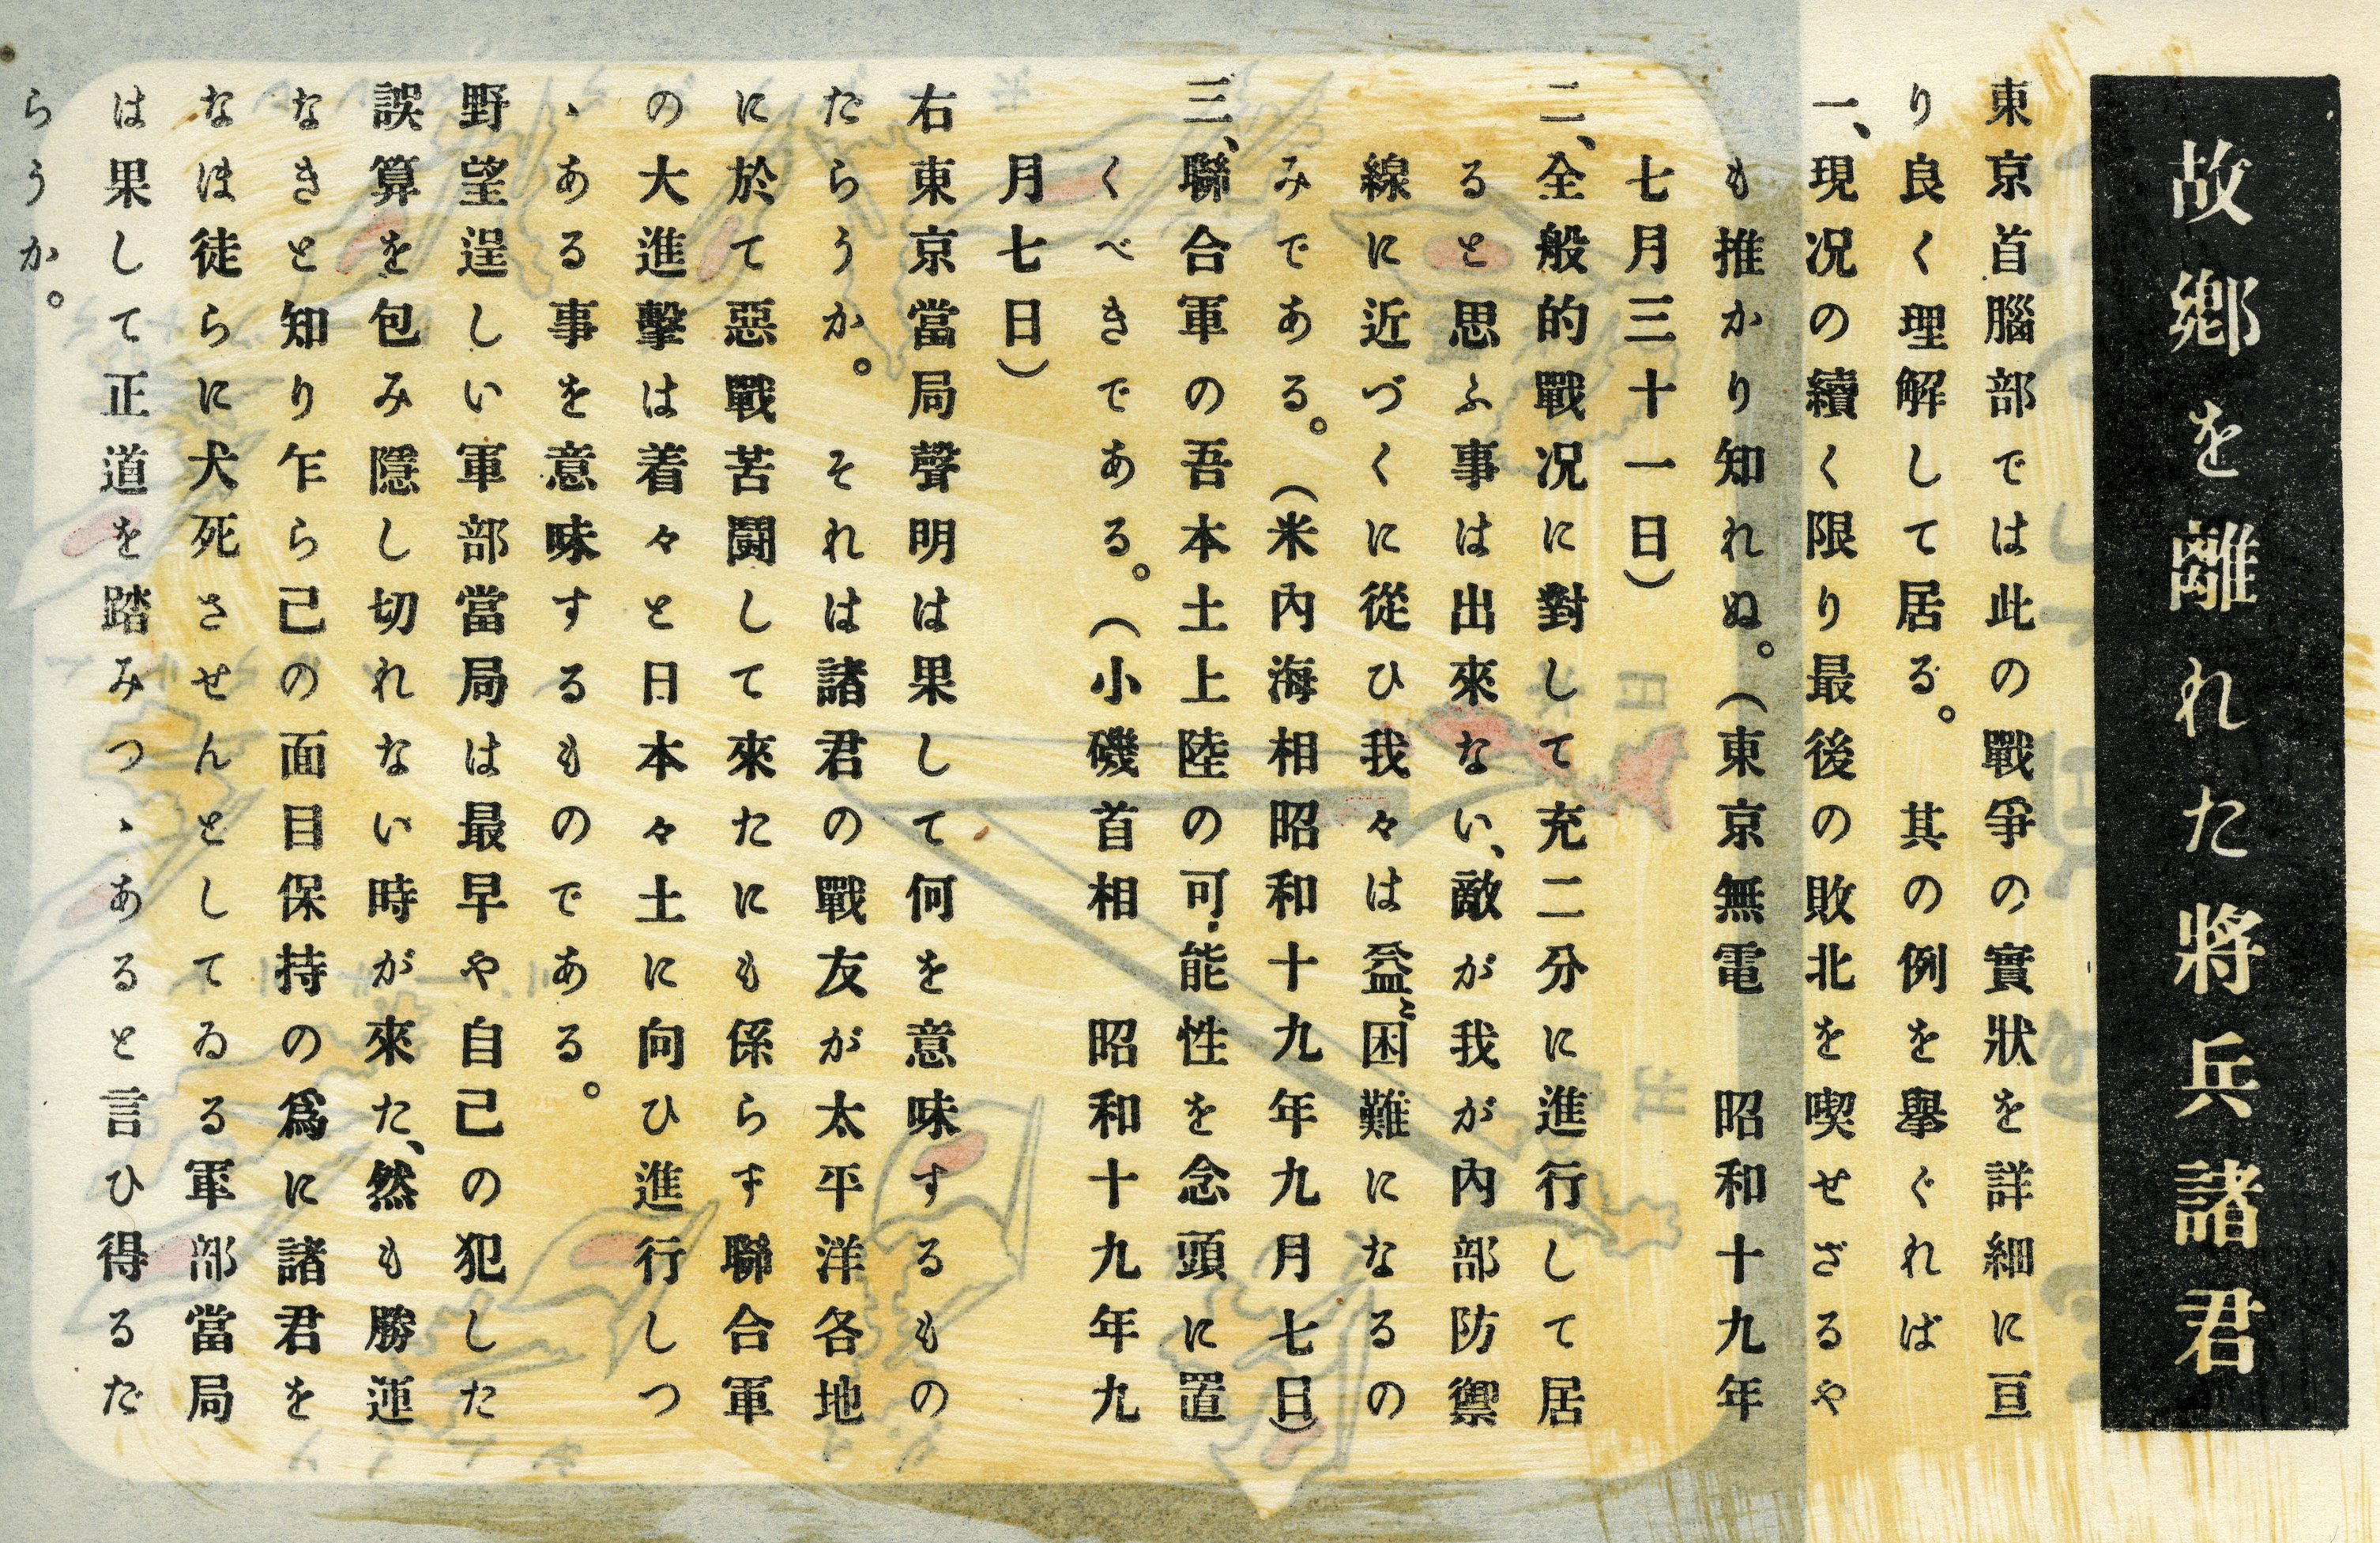 故郷を離れた將兵諸君
東京首腦部では此の戰爭の實狀を詳細に亘
り良く理解して居る。其の例を擧ぐれば
一、現况の續く限り最後の敗北を喫せざるや
も推かり知れぬ。（東京無電　昭和十九年
七月三十一日）
二、全般的戰况に對して充二分に進行して居
ると思ふ事は出來ない、敵が我が內部防禦
線に近づくに從ひ我々は益〻困難になるの
みである。（米內海相昭和十九年九月七日）
三、聯合軍の吾本土上陸の可能性を念頭に置
くべきである。（小磯首相　昭和十九年九
月七日）
右東京當局聲明は果して何を意味するもの
だらうか。それは諸君の戰友が太平洋各地
に於て惡戰苦鬪して來たにも係らず聯合軍
の大進擊は着々と日本々土に向ひ進行しつ
ゝある事を意味するものである。
野望逞しい軍部當局は最早や自己の犯した
誤算を包み隱し切れない時が來た、然も勝運
なきと知り乍ら己の面目保持の爲に諸君を
なほ徒らに犬死させんとしてゐる軍部當局
は果して正道を踏みつゝあると言ひ得るだ
らうか。